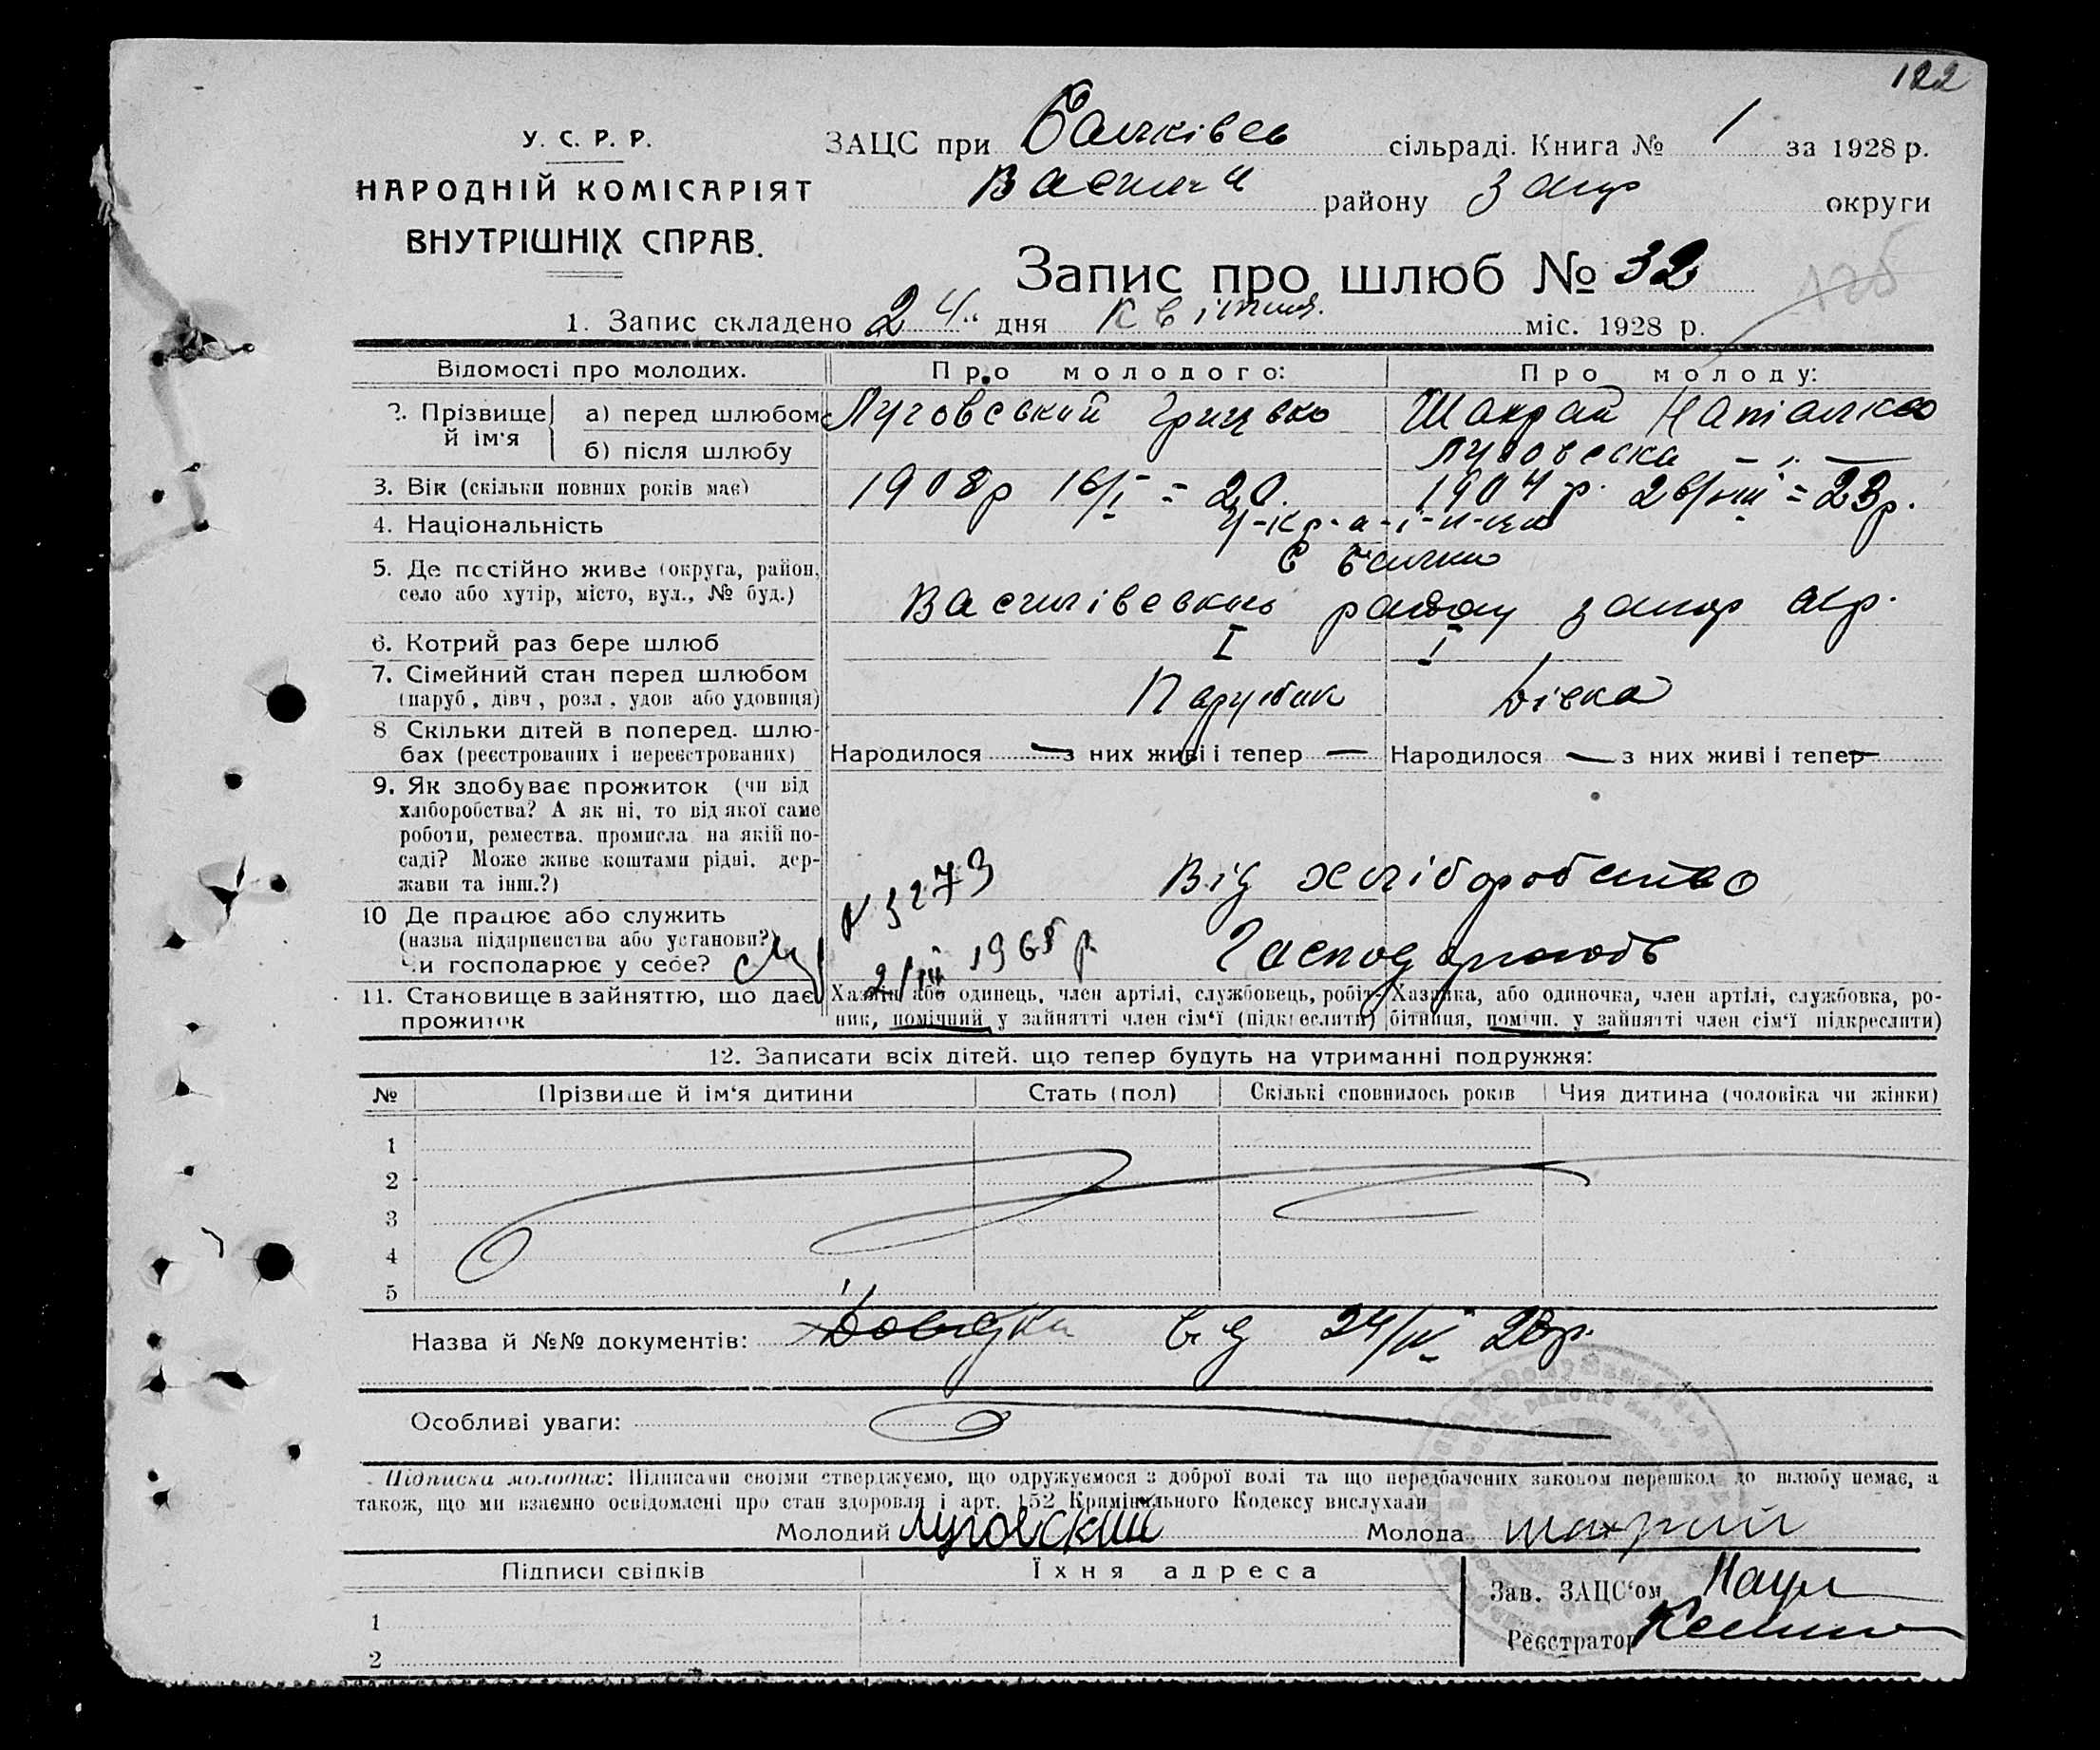 122
У. С. Р. Р.
НАРОДНІЙ КОМІСАРІЯТ
ВНУТРІШНІХ СПРАВ.
ЗАЦС при Балківсь сільраді. Книга № 1 за 1928 р.
Васили району Запор округи
Запис про шлюб № 32
1. Запис складено 24 " дня квітня міс. 1928 р.
Відомості про молодих. Про молодого: Про молоду:
2. Прізвище й ім'я
а) перед шлюбом Луговський Грицько Шахрай Наталка
б) після шлюбу Луговська — " —
3. Вік (скільки повних років має) 1908р 16/I = 20. 1904 р. 26/VIII = 23р.
4. Національність У-кр-а-ї-н-ці
5. Де постійно живе (округа, район, село або хутір, місто, вул., № буд.) с Балки
Василівського району Запор окр.
6. Котрий раз бере шлюб I I
7. Сімейний стан перед шлюбом (паруб., дівч., розл., удов. або удовиця) Парубок Дівка
8 Скільки дітей в поперед. шлюбах (реєстрованих і нереєстрованих) Народилося — з них живі і тепер — Народилося — з них живі і тепер —
9. Як здобуває прожиток (чи від хліборобства? А як ні, то від якої саме роботи, ремества, промисла на якій посаді? Може живе коштами рідні, держави та інш.?) Від хліборобства
10 Де працює або служить (назва підприємства або установи?) Чи господарює у себе? Господарюють
N 3273
2/III 1965 р.
11. Становище в зайняттю, що дає прожиток
Хазяїн або одинець, член артілі, службовець, робітник, помічний у зайнятті член сім'ї (підкреслити)
Хазяйка, або одиночка, член артілі, службовка, робітниця, помічн. у зайнятті член сім'ї підкреслити)
12. Записати всіх дітей, що тепер будуть на утриманні подружжя:
№ Прізвище й ім'я дитини Стать (пол) Скількі сповнилось років Чия дитина (чоловіка чи жінки)
1
2
3
4
5
Назва й №№ документів: Довідки від 24/IV 28р.
Особливі уваги:
Підписка молодих: Підписами своїми стверджуємо, що одружуємося з доброї волі та що передбачених законом перешкод до шлюбу немає, а
також, що ми взаємно освідомлені про стан здоровля і арт. 152 Кримінального Кодексу вислухали
Молодий Луговский Молода Шахрай
Підписи свідків Їхня адреса
Зав. ЗАЦС'ом
Реєстратор
1
2